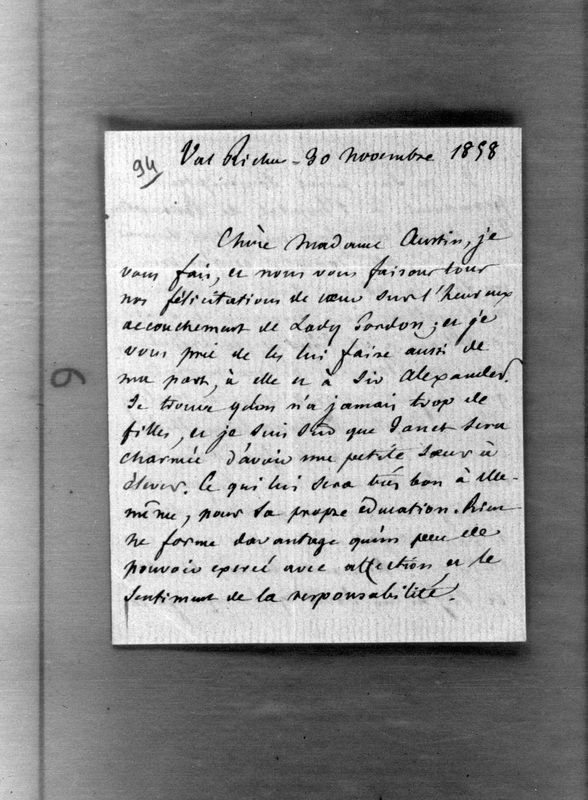 94
Val Richer - 30 novembre 1858
Chère Madame Austin, je
vous fais, et nous vous faisons tous
nos félicitations de cœur sur l'heureux
accouchement de Lady Gordon ; et je
vous prie de les lui faire aussi de
ma part, à elle et à Sir Alexander.
Je trouve qu'on n'a jamais trop de
filles, et je suis sûr que Janet sera
charmée d'avoir une petite sœur à
élever. Ce qui lui sera très bon à elle-
même, pour sa propre éducation. Rien
ne forme davantage qu'un peu de
pouvoir exercé avec affection et le
sentiment de la responsabilité.
6